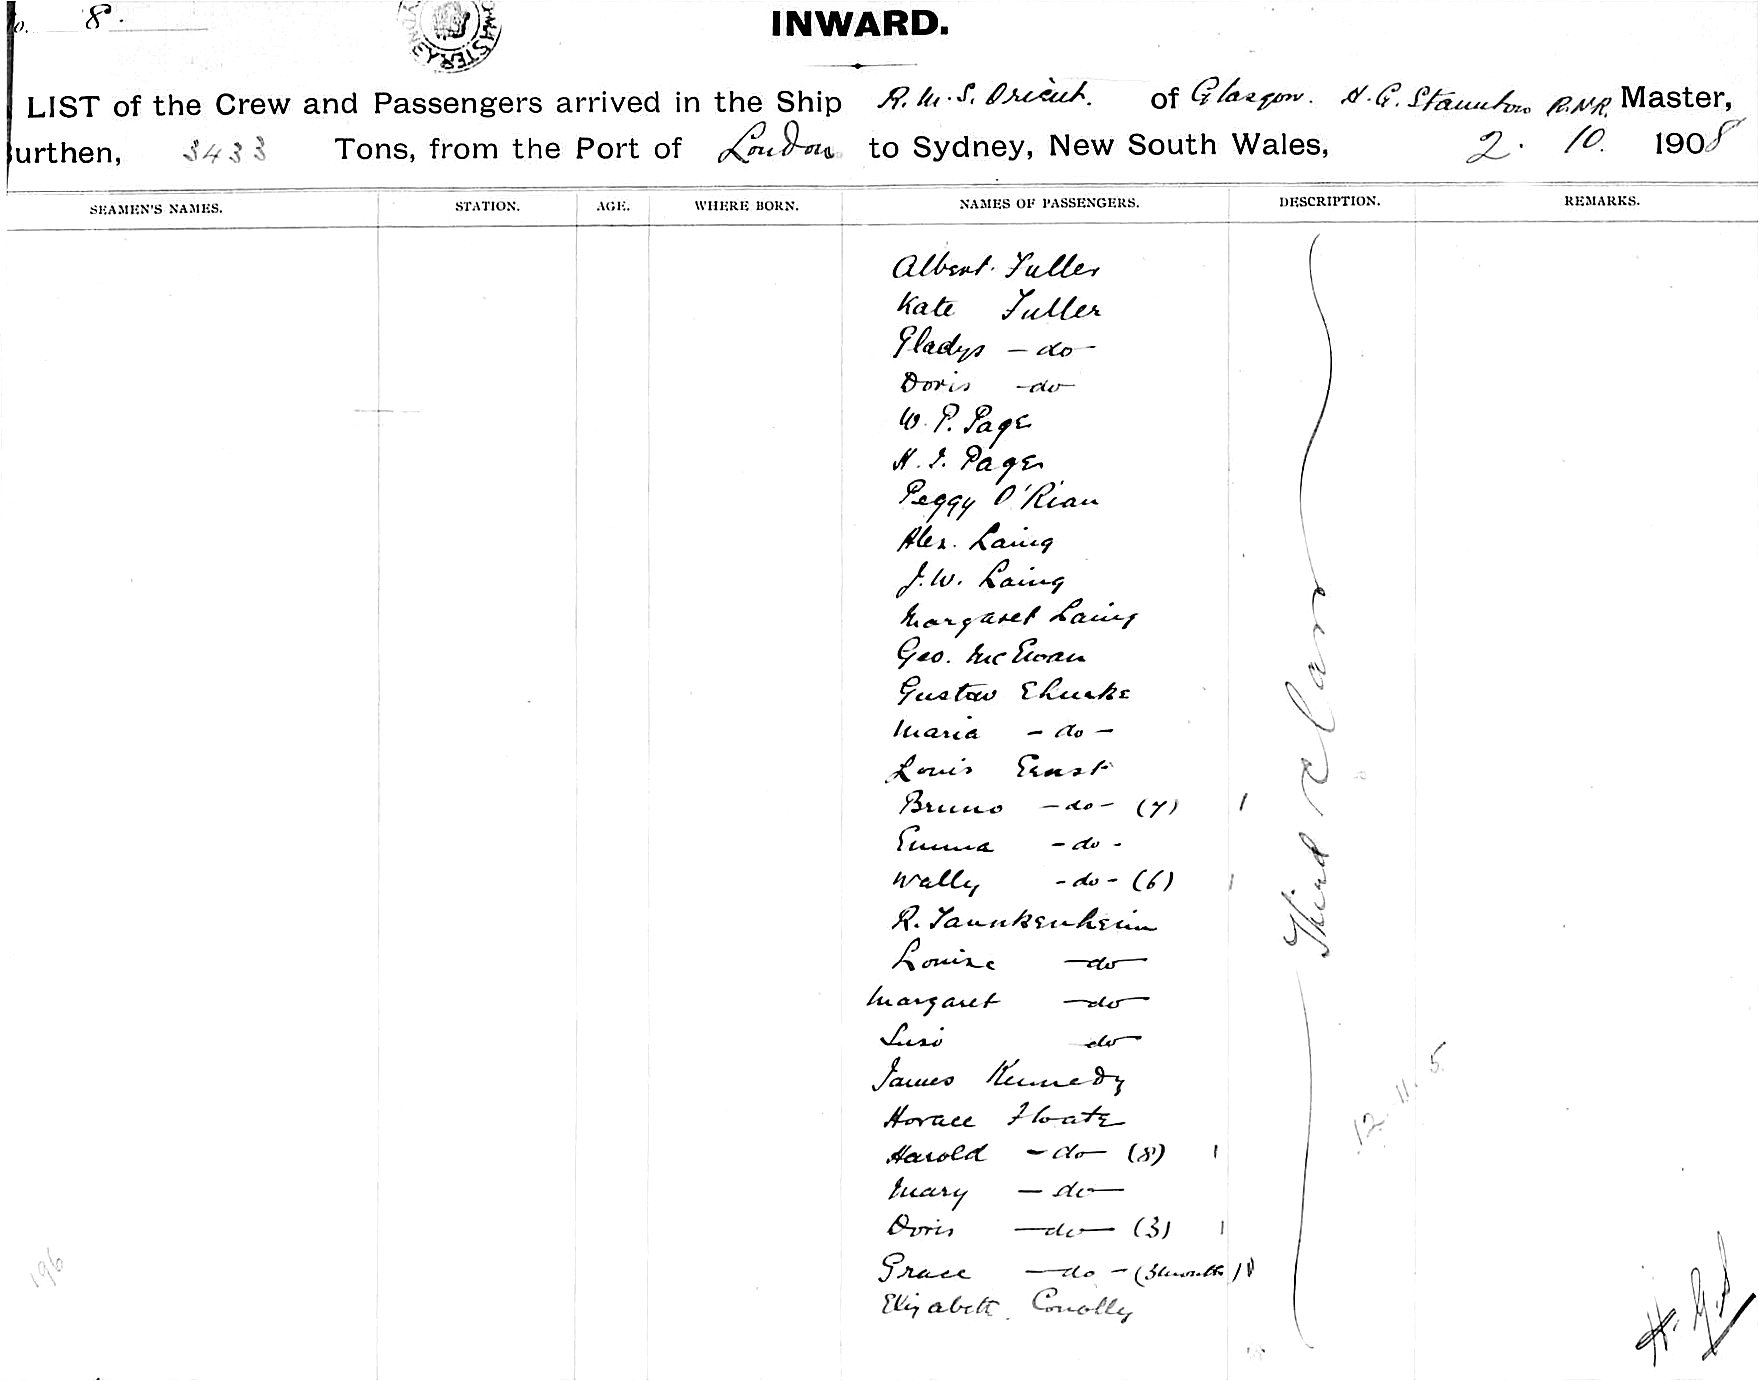 o. 8.
INWARD.
LIST of the Crew and Passengers arrived in the Ship R.M.S. Orient. of Glasgow. H. G. Staunton R.N.R. Master,
urthen, 3433 Tons, from the Port of London to Sydney, New South Wales, 2. 10. 1908
SEAMEN'S NAMES. STATION. AGE. WHERE BORN. NAMES OF PASSENGERS. DESCRIPTION. REMARKS.
Albert Fuller
Kate Fuller
Gladys - do -
Doris - do -
W. P. Page
H. I. Page
Peggy O'Rian
Alex. Laing
J. W. Laing
Margaret Laing
Geo. McEwan
Gustav
Maria - do -
Louis Ernst
Bruno - do - (7) 1
Emma - do -
Wally - do - (6) 1
R.
Louise - do -
Margaret - do -
do
James Kennedy
Horace Floate
Harold - do - (8) 1
Mary - do -
Doris - do - (3) 1
Grace - do -
Elizabeth Conolly
Third Class
12. 11. 5
196
H. G. S